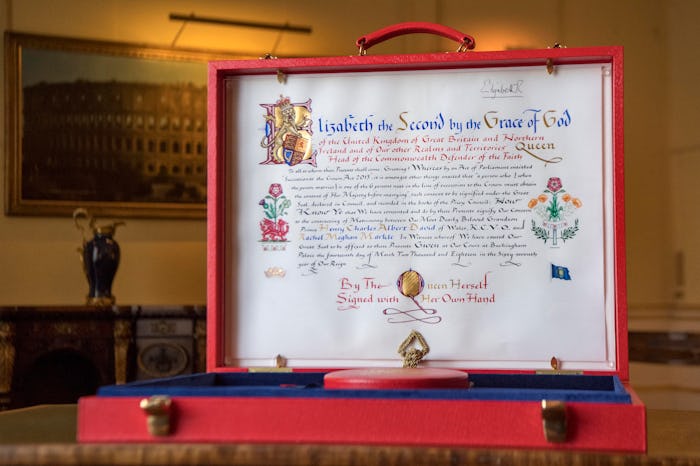 Elizabeth R
Elizabeth the Second by the Grace of God
of the United Kingdom of Great Britain and Northern
Ireland and of Our other Realms and Territories Queen
Head of the Commonwealth Defender of the Faith
To all to whom these Presents shall come Greeting! Whereas by an Act of Parliament entituled
Succession to the Crown Act 2013, it is amongst other things enacted that "a person who (when
the person marries) is one of the 6 persons next in the line of succession to the Crown must obtain
the consent of Her Majesty before marrying", such consent to be signified under the Great
Seal, declared in Council, and recorded in the books of the Privy Council: Now
Know Ye that We have consented and do by these Presents signify Our Consent
to the contracting of Matrimony between Our Most Dearly Beloved Grandson
Prince Henry Charles Albert David of Wales, K.C.V.O. and
Rachel Meghan Markle. In Witness whereof We have caused Our
Great Seal to be affixed to these Presents Given at Our Court at Buckingham
Palace the fourteenth day of March Two Thousand and Eighteen in the Sixty-seventh
year of Our Reign
By The Queen Herself
Signed with Her Own Hand